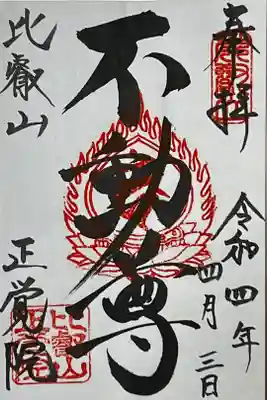 奉拝
令和四年
四月三日
不動尊
比叡山
正覚院